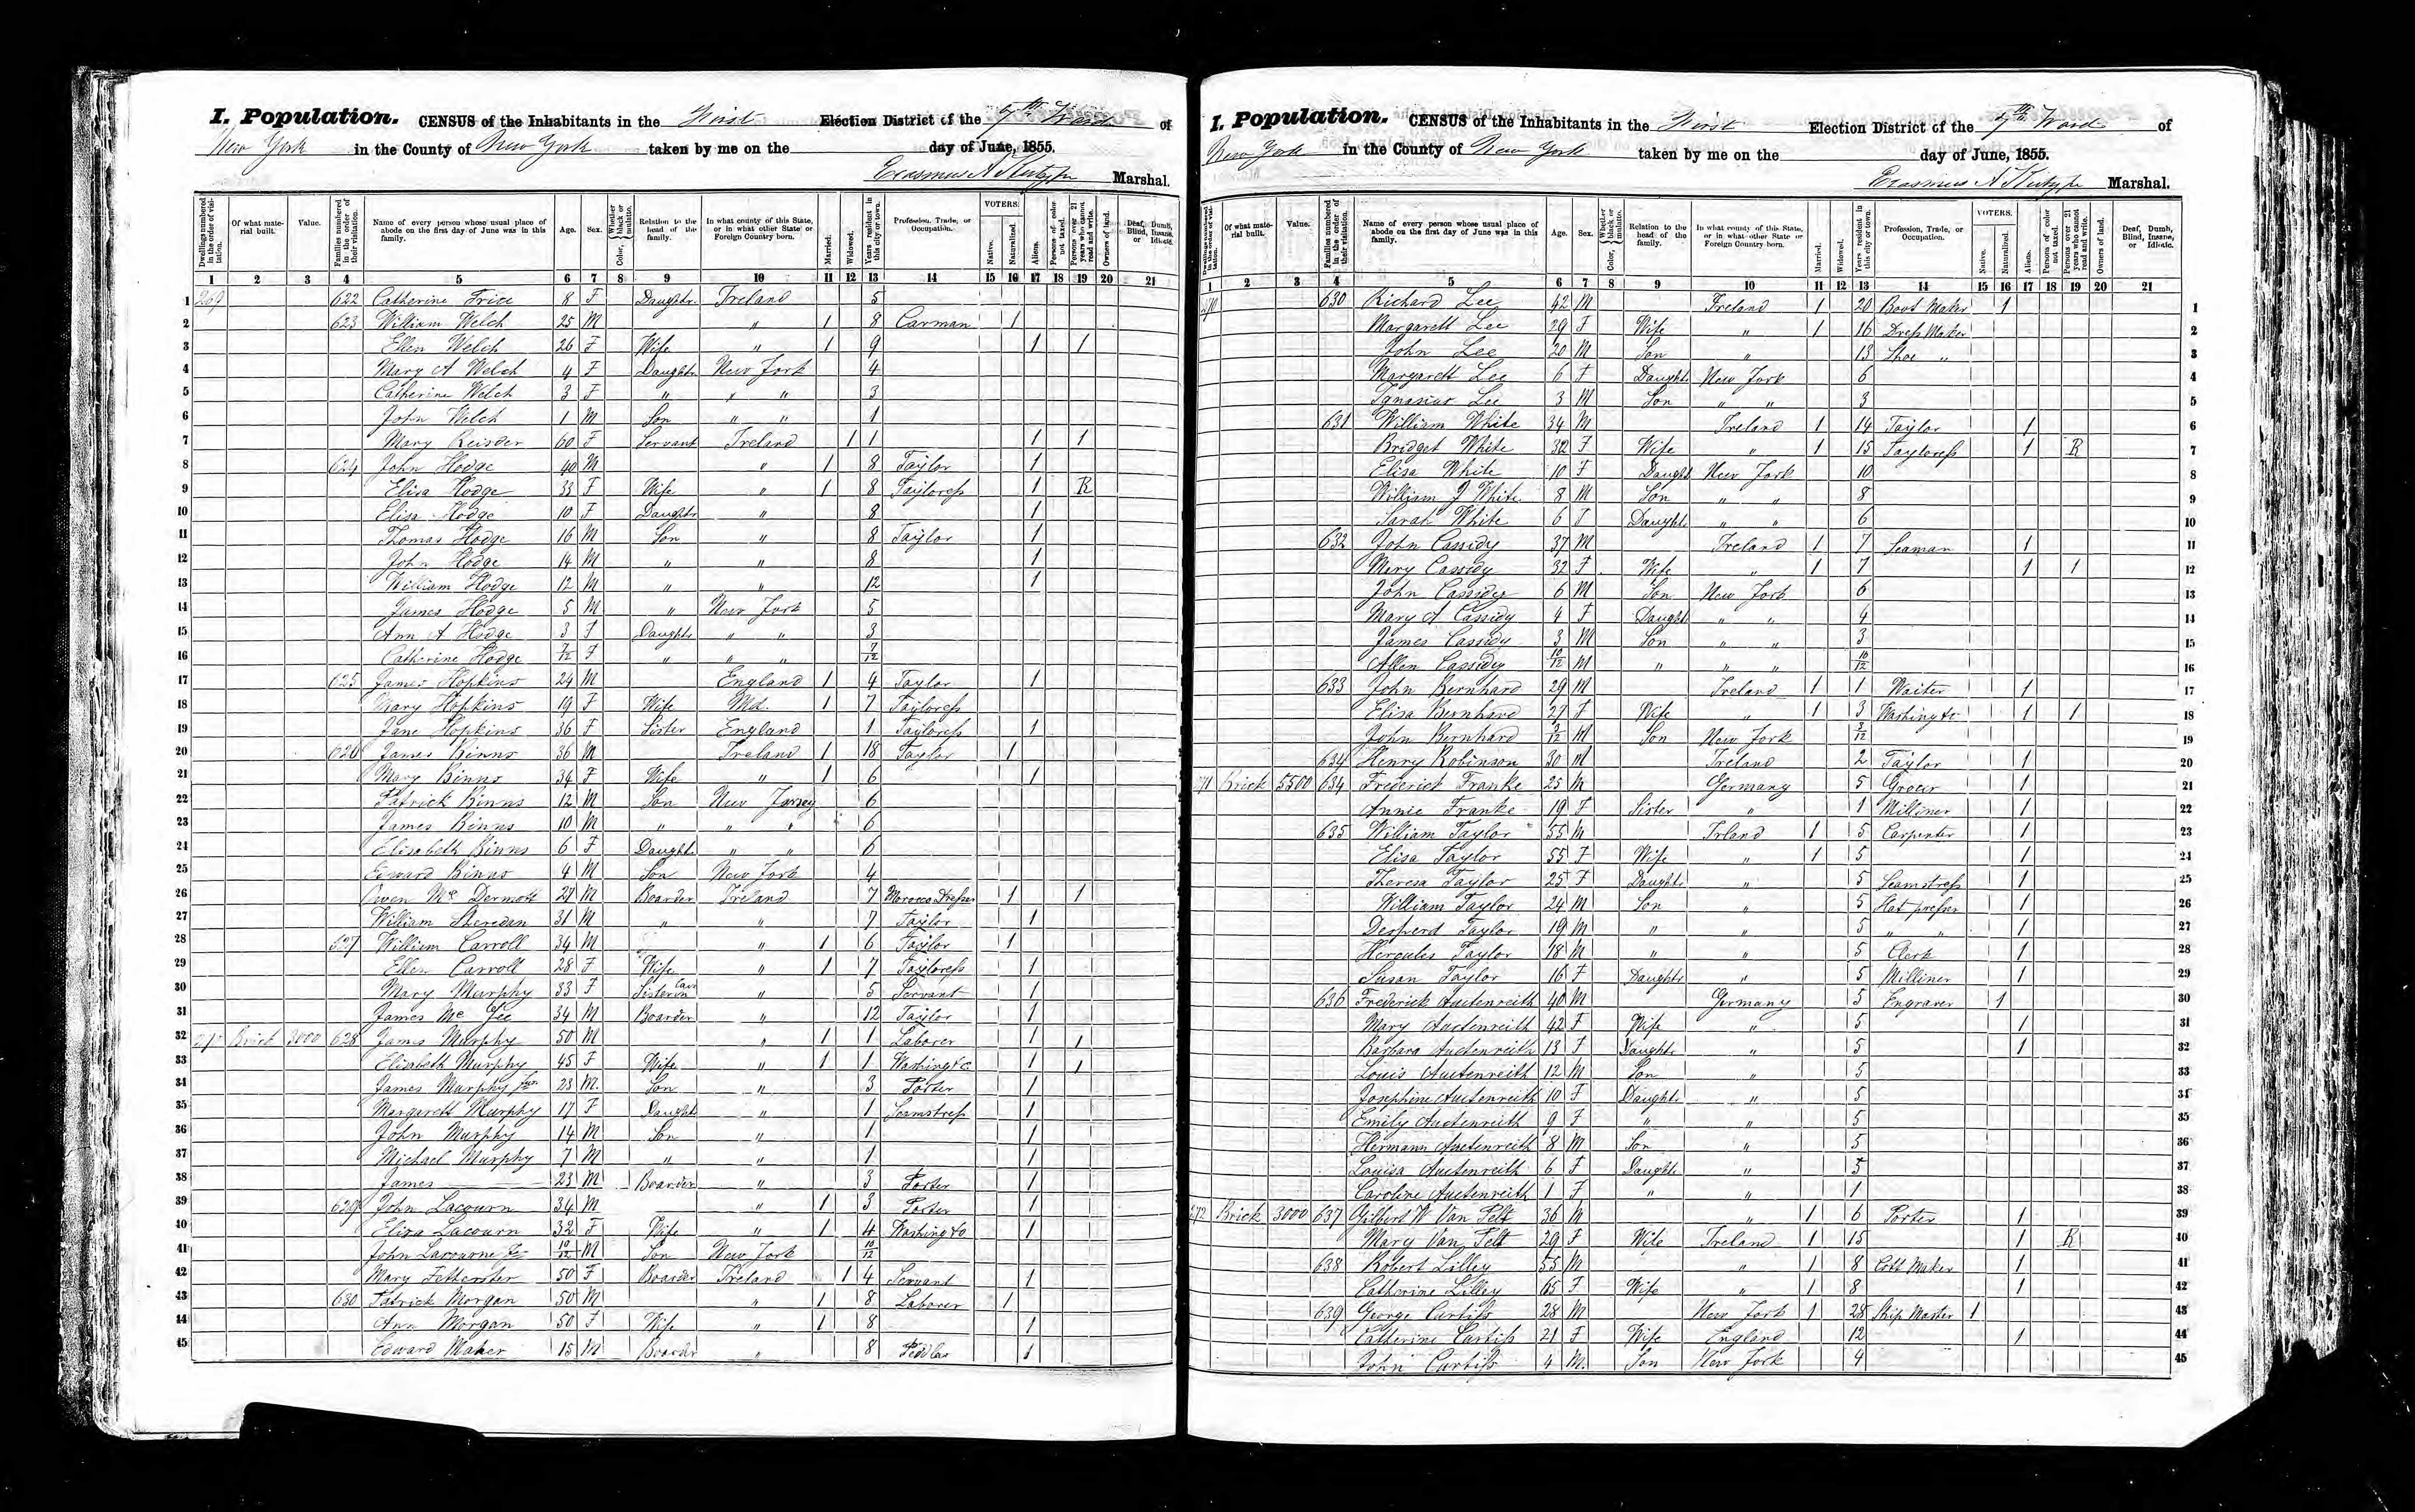 I. Population. CENSUS of the Inhabitants in the First Election District of the 7th Ward of
New York in the County of New York taken by me on the day of June, 1855.
Erasmus A Marshal.
Dwellings numbered in the order of visitation. Of what material built. Value. Families numbered in the order of their visitation. Name of every person whose usual place of abode on the first day of June was in this family. Age. Sex. Color, Whether black or mulatto. Relation to the head of the family. In what county of this State, or in what other State or Foreign Country born. Married. Widowed. Years resident in this city or town. Profession, Trade, or Occupation. VOTERS. Native. Naturalized. Aliens. Persons of color not taxed. Persons over 21 years who cannot read and write. Owners of land. Deaf, Dumb, Blind, Insane, or Idiotic.
1 2 3 4 5 6 7 8 9 10 11 12 13 14 15 16 17 18 19 20 21
1 269 622 Catherine Price 8 F Daughtr Ireland 5
2 623 William Welch 25 M " 1 8 Carman 1
3 Ellen Welch 26 F Wife " 1 9 1 1
4 Mary A Welch 4 F Daughtr New York 4
5 Catherine Welch 3 F " " " 3
6 John Welch 1 M Son " " 1
7 Mary 60 F Servant Ireland 1 1 1 1
8 624 John Hodge 40 M " 1 8 Taylor 1
9 Elisa Hodge 33 F Wife " 1 8 Tayloress 1 R
10 Elisa Hodge 10 F Daughtr " 8 1
11 Thomas Hodge 16 M Son " 8 Taylor 1
12 John Hodge 14 M " " 8 1
13 William Hodge 12 M " " 12 1
14 James Hodge 5 M " New York 5
15 Ann A Hodge 3 F Daughtr " " 3
16 Catherine Hodge 7/12 F " " " 7/12
17 625 James Hopkins 24 M England 1 4 Taylor 1
18 Mary Hopkins 19 F Wife Md. 1 7 Tayloress
19 Jane Hopkins 36 F Sister England 1 Tayloress 1
20 626 James Binns 36 M Ireland 1 18 Taylor 1
21 Mary Binns 34 F Wife " 1 6 1
22 Patrick Binns 12 M Son New Jersey 6
23 James Binns 10 M " " " 6
24 Elisabeth Binns 6 F Daught " " 6
25 Edward Binns 4 M Son New York 4
26 Owen Mc Dermott 27 M Boarder Ireland 7 Morocco Dresser 1 1
27 William Sheredan 31 M " " 7 Taylor 1
28 627 William Carroll 34 M " 1 6 Taylor 1
29 Ellen Carroll 28 F Wife " 1 7 Tayloress 1
30 Mary Murphy 33 F Sister in Law " 5 Servant 1
31 James Mc Gee 34 M Boarder " 12 Taylor 1
32 Brick 3000 628 James Murphy 50 M " 1 1 Laborer 1 1
33 Elisabeth Murphy 45 F Wife " 1 1 Washing &c 1 1
34 James Murphy Jun 23 M. Son " 3 Porter 1
35 Margarett Murphy 17 F Daught " 1 Seamstress 1
36 John Murphy 14 M Son " 1 1
37 Michael Murphy 7 M " " 1 1
38 James 23 M Boarder " 3 Porter 1
39 629 John Lacourn 34 M " 1 3 Porter 1
40 Eliza Lacourn 32 F Wife " 1 4 Washing &c 1
41 John Lacourne Jr 10/12 M Son New York 10/12
42 Mary 50 F Boarder Ireland 1 4 Servant 1
43 630 Patrick Morgan 50 M " 1 8 Laborer 1
44 Ann Morgan 50 F Wife " 1 8 1
45 Edward Maher 15 M Boarder " 8 Pedlar 1
I. Population. CENSUS of the Inhabitants in the First Election District of the 7th Ward of
New York in the County of New York taken by me on the day of June, 1855.
Erasmus A Marshal.
Dwellings numbered in the order of visitation. Of what material built. Value. Families numbered in the order of their visitation. Name of every person whose usual place of abode on the first day of June was in this family. Age. Sex. Color, Whether black or mulatto. Relation to the head of the family. In what county of this State, or in what other State or Foreign Country born. Married. Widowed. Years resident in this city or town. Profession, Trade, or Occupation. VOTERS. Native. Naturalized. Aliens. Persons of color not taxed. Persons over 21 years who cannot read and write. Owners of land. Deaf, Dumb, Blind, Insane, or Idiotic.
1 2 3 4 5 6 7 8 9 10 11 12 13 14 15 16 17 18 19 20 21
630 Richard Lee 42 M Ireland 1 20 Boot Maker 1 1
Margarett Lee 29 F Wife " 1 16 Dress Maker 2
John Lee 20 M Son " 13 Shoe " 3
Margarett Lee 6 F Daught New York 6 4
Ignasius Lee 3 M Son " " 3 5
631 William White 34 M Ireland 1 14 Taylor 1 6
Bridget White 32 F Wife " 1 15 Tayloress 1 R 7
Elisa White 10 F Daught New York 10 8
William J White 8 M Son " " 8 9
Sarah White 6 F Daught " " 6 10
632 John Cassidy 37 M Ireland 1 7 Seaman 1 11
Mery Cassidy 32 F Wife " 1 7 1 1 12
John Cassidy 6 M Son New York 6 13
Mary A Cassidy 4 F Daught " " 4 14
James Cassidy 3 M Son " " 3 15
Allen Cassidy 10/12 M " " " 10/12 16
633 John Bernhard 29 M Ireland 1 1 Waiter 1 17
Elisa Bernhard 27 F Wife " 1 3 Washing &c 1 1 18
John Bernhard M Son New York 19
634 Henry Robinson 30 M Ireland 2 Taylor 1 20
71 Brick 5500 634 Frederick Franke 25 M Germany 5 Grocer 1 21
Annie Franke 19 F Sister " 1 Milliner 1 22
635 William Taylor 55 M Irland 1 5 Carpenter 1 23
Elisa Taylor 55 F Wife " 1 5 1 24
Theresa Taylor 25 F Daught " 5 Seamstress 1 25
William Taylor 24 M Son " 5 Hat presser 1 26
Desperd Taylor 19 M " " 5 " " 1 27
Hercules Taylor 18 M " " 5 Clerk 1 28
Susan Taylor 16 F Daught " 5 Milliner 1 29
636 Frederick Austenreith 40 M Germany 5 Engraver 1 30
Mary Austenreith 42 F Wife " 5 1 31
Barbara Austenreith 13 F Daught " 5 1 32
Louis Austenreith 12 M Son " 5 33
Josephine Austenreith 10 F Daught " 5 34
Emily Austenreith 9 F " " 5 35
Hermann Austenreith 8 M Son " 5 36
Louisa Austenreith 6 F Daught " 5 37
Caroline Austenreith 1 F " " 1 38
272 Brick 3000 637 Gilbert W Van Pelt 36 M " 1 6 Porter 1 39
Mary Van Pelt 29 F Wife Ireland 1 15 1 R 40
638 Robert Lilley 55 M " 1 8 Cott Maker 1 41
Catherine Lilley 65 F Wife " 1 8 1 42
639 George Curtiss 28 M New York 1 28 Ship Master 1 43
Catherine Curtiss 21 F Wife England 12 1 44
John Curtiss 4 M. Son New York 4 45